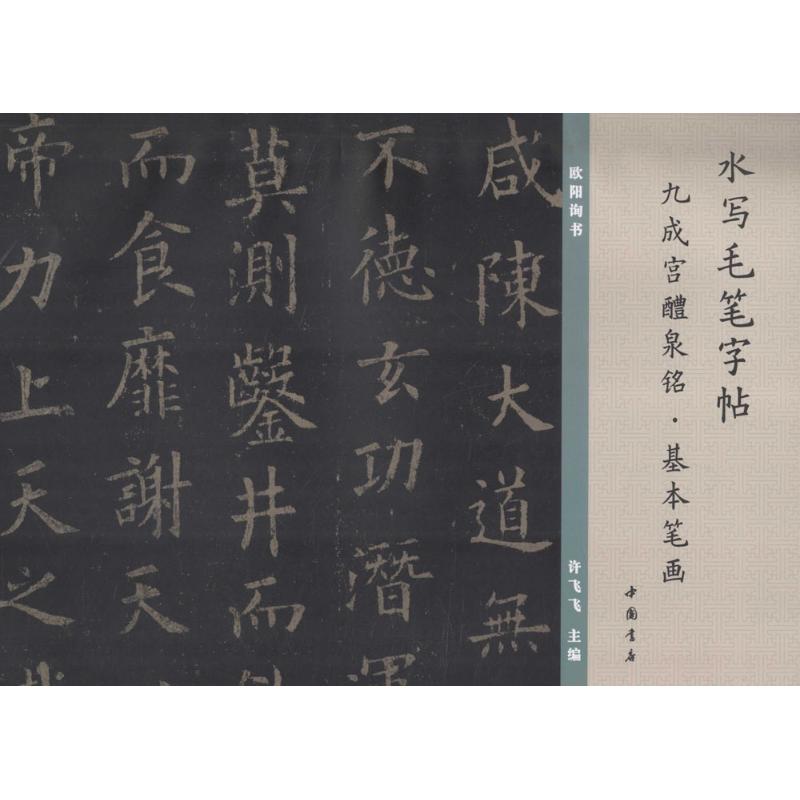 水写毛笔字帖
九成宫醴泉铭·基本笔画
中国书店
欧阳询书
许飞飞 主编
咸陳大道無
不德玄功潛運
莫測鑿井而
而食靡謝天
帝力上天之